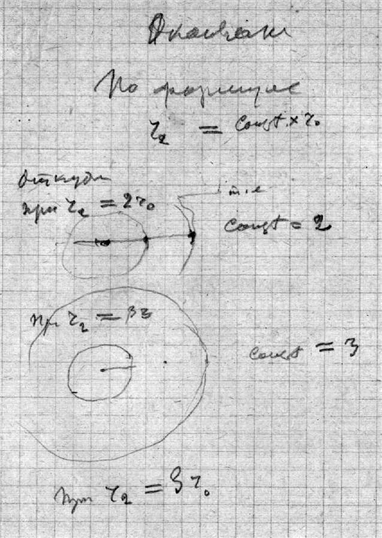 По формуле
r₂ = const × r₀
откуда
при r₂ = 2r₀
т.е
const = 2
при r₂ = 3r₀
const = 3
при r₂ = 3r₀